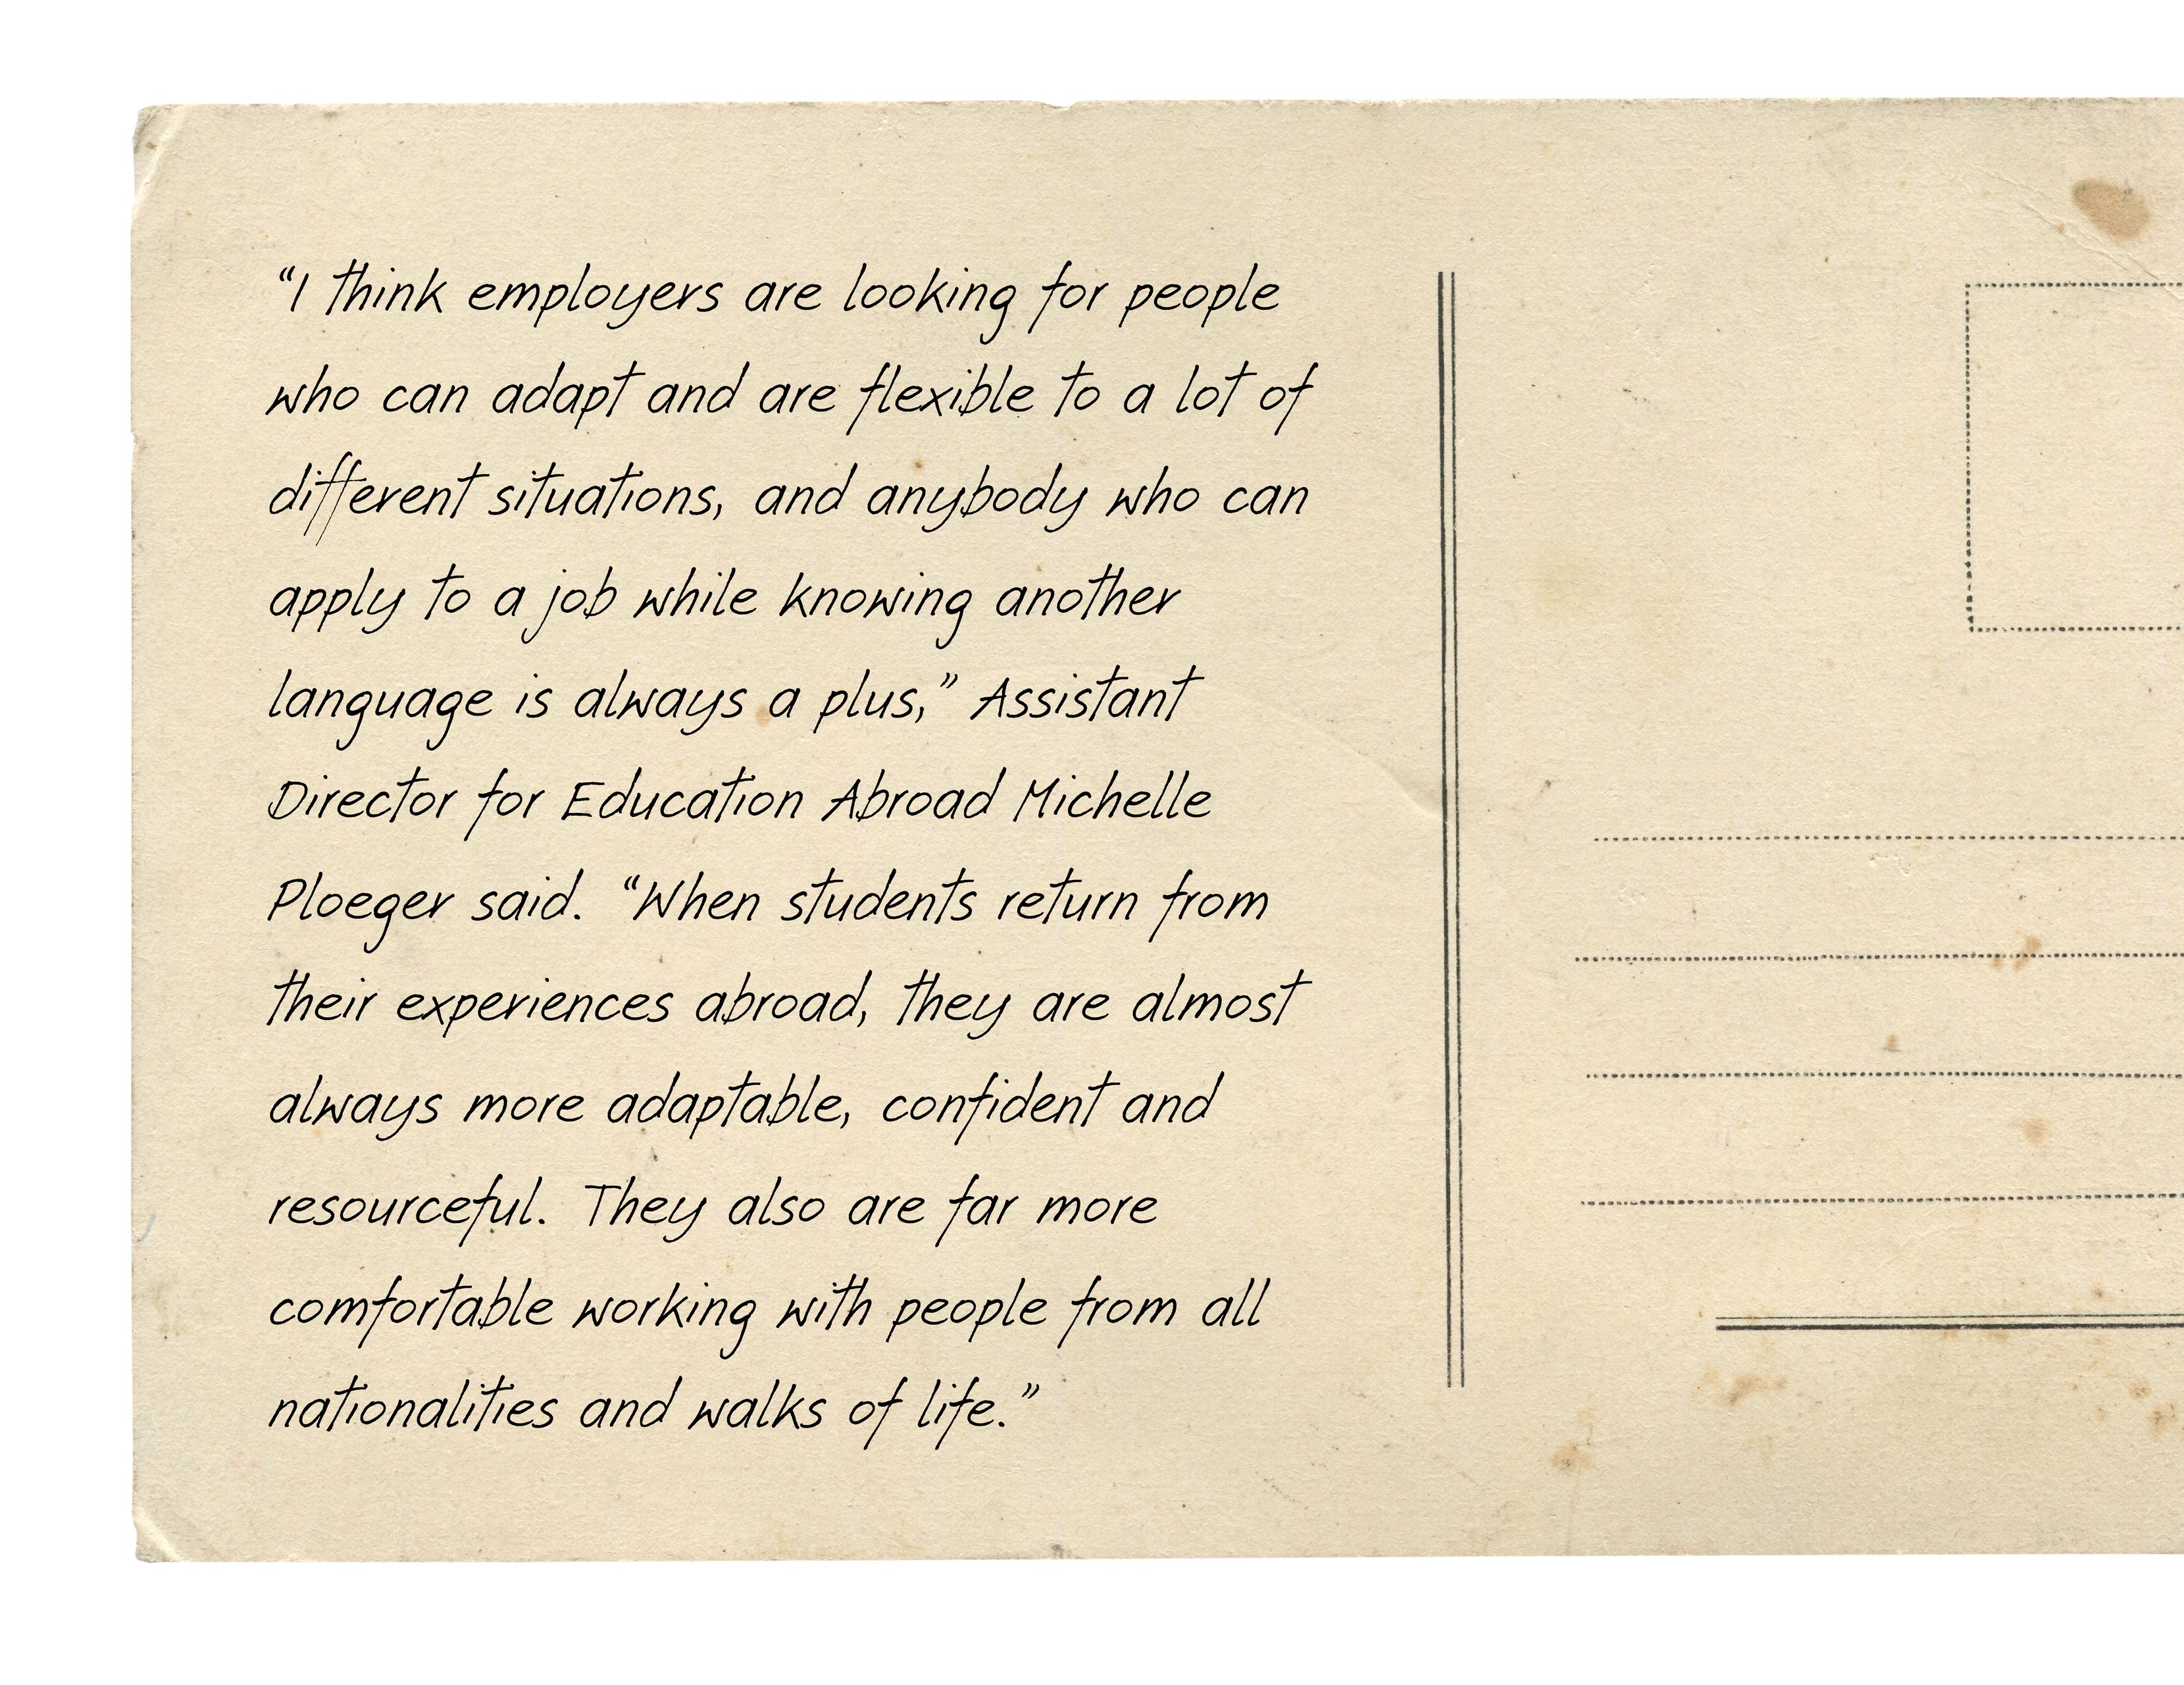 “I think employers are looking for people
who can adapt and are flexible to a lot of
different situations, and anybody who can
apply to a job while knowing another
language is always a plus,” Assistant
Director for Education Abroad Michelle
Ploeger said. “When students return from
their experiences abroad, they are almost
always more adaptable, confident and
resourceful. They also are far more
comfortable working with people from all
nationalities and walks of life.”